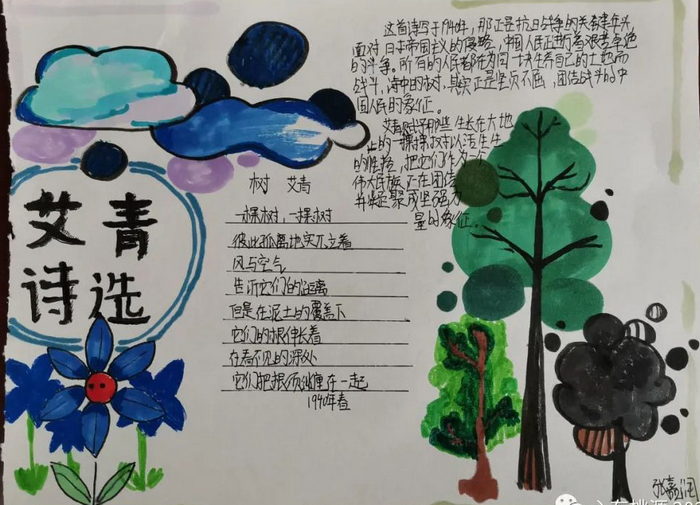 艾青
诗选
树 艾青
一棵树,一棵树
彼此孤离地兀立着
风与空气
告诉它们的距离
但是在泥土的覆盖下
它们的根伸长着
在看不见的深处
它们把根须纠缠在一起
1940年春
这首诗写于1940年,那正是抗日战争的关键年头,
面对日本帝国主义的侵略,中国人民正进行着艰苦卓绝
的斗争。所有的人民都在为
战斗,诗中的树,其实正是坚贞不屈,团结战斗的中
国人民的象征。
艾青 生长在大地
上的一棵棵树以活生生
的性格,把它们作为
伟大民族 在团结
并 凝聚成坚强力
量的象征
张嘉润